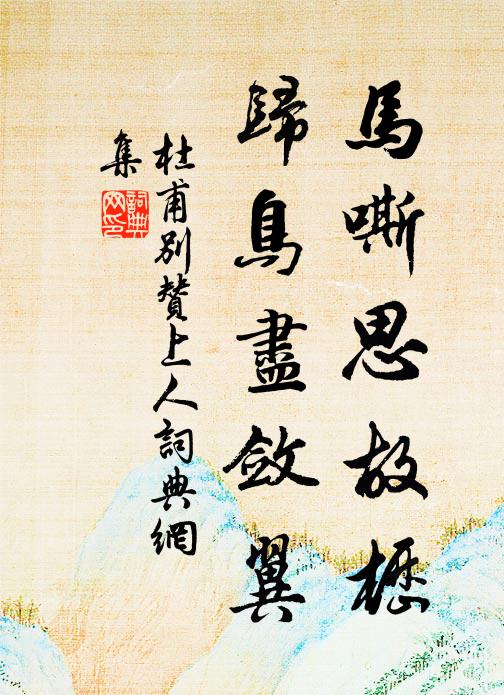 馬嘶思故櫪
歸鳥盡斂翼
杜甫別贊上人詞典網
集
詞典
网印